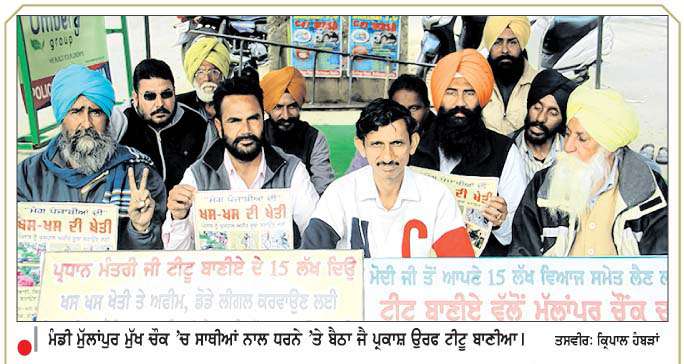 Umberg
group
POLICE
ਮੰਗ ਪੰਜਾਬੀਆਂ ਦੀ
ਖਸ-ਖਸ ਦੀ ਖੇਤੀ
ਮੰਗ ਪੰਜਾਬੀਆਂ ਦੀ
ਖਸ-ਖਸ ਦੀ ਖੇਤੀ
ਖਸ-ਖਸ ਦੀ ਖੇਤੀ
ਪ੍ਰਧਾਨ ਮੰਤਰੀ ਜੀ ਟੀਟੂ ਬਾਣੀਏ ਦੇ 15 ਲੱਖ ਦਿਉ
ਖਸ ਖਸ ਖੇਤੀ ਤੇ ਅਫੀਮ, ਡੋਡੇ ਲੀਗਲ ਕਰਵਾਉਣ ਲਈ
ਮੋਦੀ ਜੀ ਤੋਂ ਆਪਣੇ 15 ਲੱਖ ਵਿਆਜ ਸਮੇਤ ਲੈਣ ਲ
ਟੀਟੂ ਬਾਣੀਏ ਵੱਲੋਂ ਮੁੱਲਾਂਪੁਰ ਚੌਂਕ ਚ
ਮੰਡੀ ਮੁੱਲਾਂਪੁਰ ਮੁੱਖ ਚੌਕ ’ਚ ਸਾਥੀਆਂ ਨਾਲ ਧਰਨੇ ’ਤੇ ਬੈਠਾ ਜੈ ਪ੍ਰਕਾਸ਼ ਉਰਫ ਟੀਟੂ ਬਾਣੀਆ। ਤਸਵੀਰ: ਕ੍ਰਿਪਾਲ ਹੰਬੜਾਂ